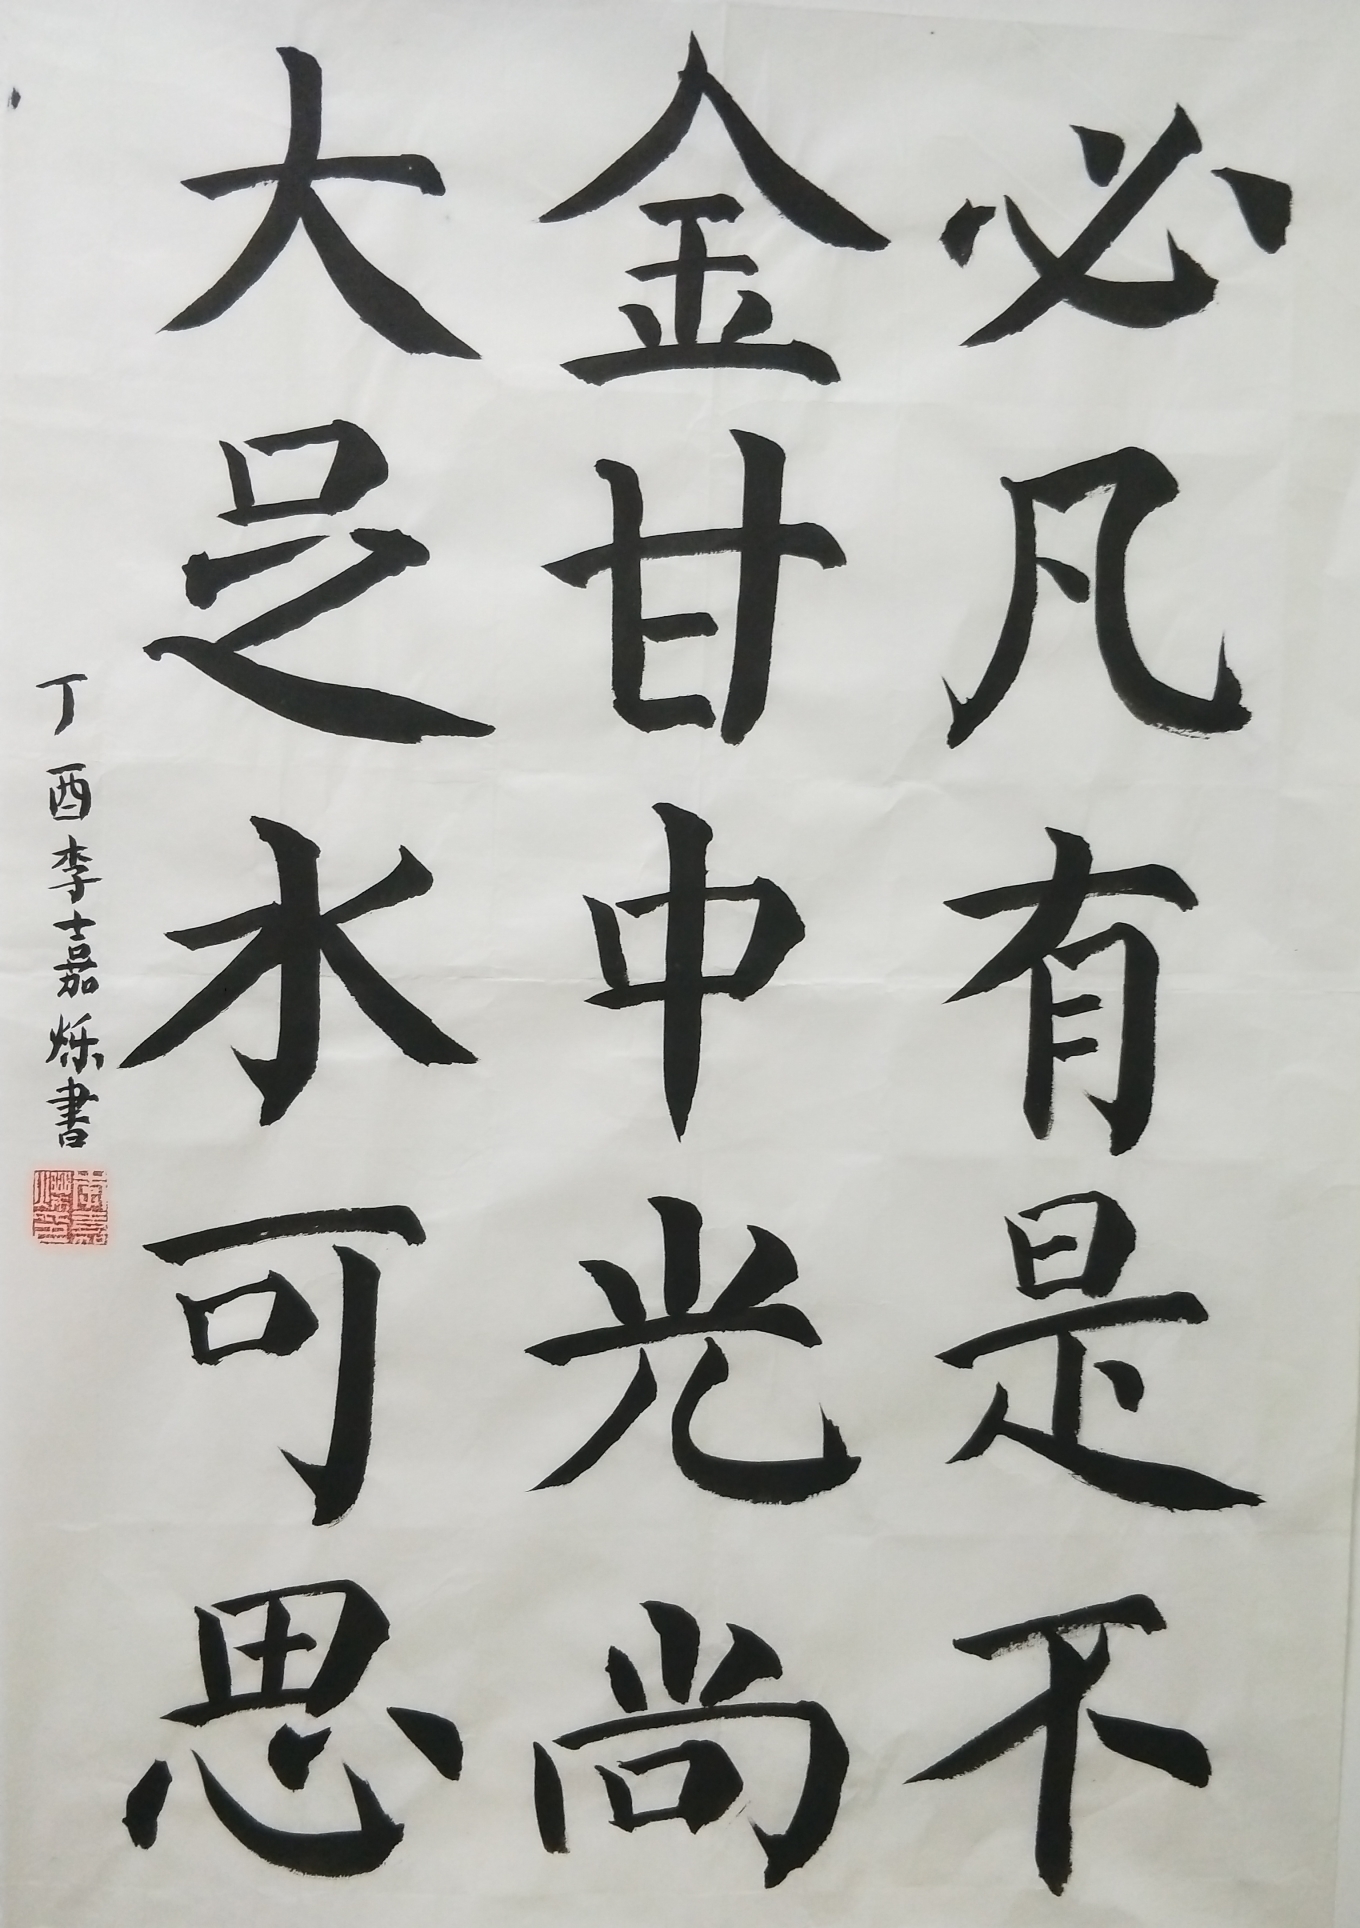 必凡有是不
金甘中光尚
大足水可思
丁酉李嘉烁書